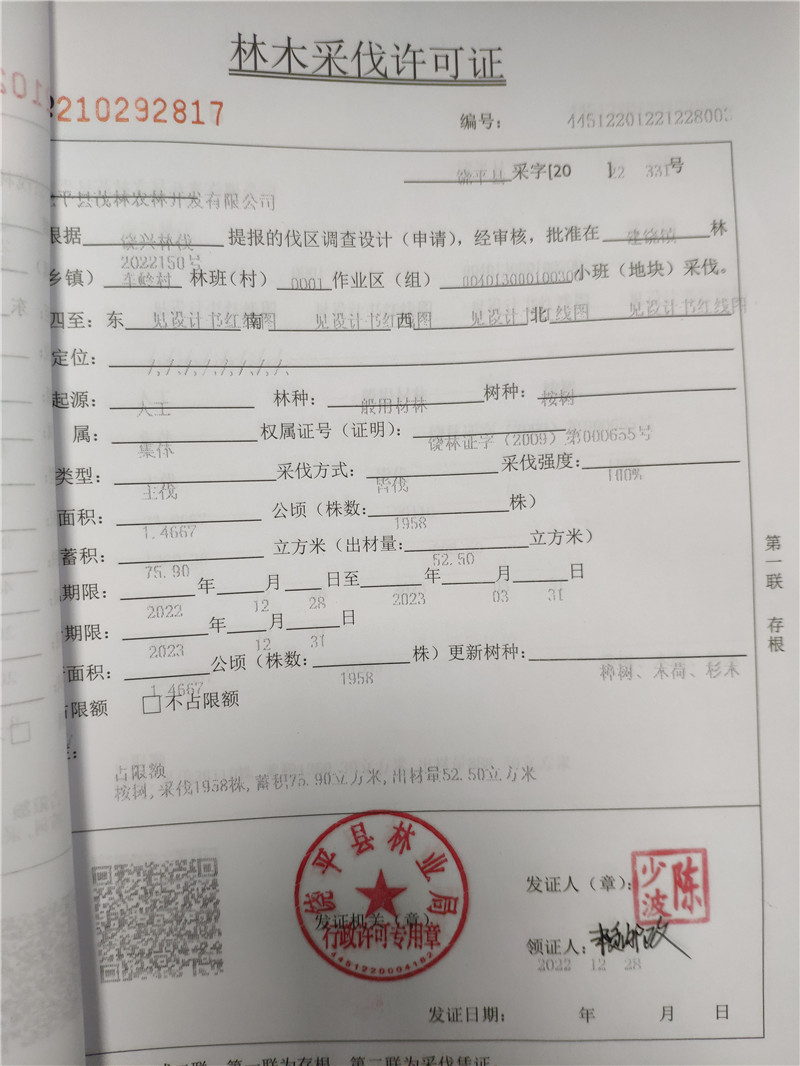 林木采伐许可证
210292817
编号: 44512201221228003
饶平县 采字[20 ]22 331号
平县茂林农林开发有限公司
根据 饶兴林伐 2022150号 提报的伐区调查设计（申请），经审核，批准在 建饶镇 林
乡镇） 车岭村 林班（村） 0001 作业区（组） 00401300010030 小班（地块）采伐。
四至：东 见设计书红线图 南 见设计书红线图 西 见设计书红线图 北 见设计书红线图
定位： /./././././././.
起源： 人工 林种： 一般用材林 树种： 桉树
属： 集体 权属证号（证明）： 饶林证字（2009）第000655号
类型： 主伐 采伐方式： 皆伐 采伐强度： 100%
面积： 1.4667 公顷（株数： 1958 株）
蓄积： 75.90 立方米（出材量： 52.50 立方米）
期限： 2022 年 12 月 28 日至 2023 年 03 月 31 日
期限： 2023 年 12 月 31 日
面积： 1.4667 公顷（株数： 1958 株）更新树种： 樟树、木荷、杉木
占限额 □不占限额
占限额
桉树，采伐1958株，蓄积75.90立方米，出材量52.50立方米
饶平县林业局
发证机关（章）
行政许可专用章
发证人（章）： 陈少波
领证人：
2022 12 28
发证日期： 年 月 日
第一联 存根
第一联为存根，第二联为采伐凭证。